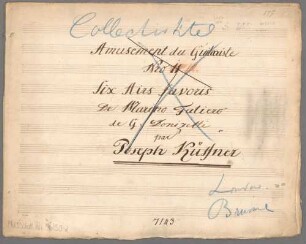 Collectivtitel
Amusement du Guitariste
No 11
Six Airs favoris
De Marino Faliero
de G. Donizetti
par
Joseph Küffner
London.
7123